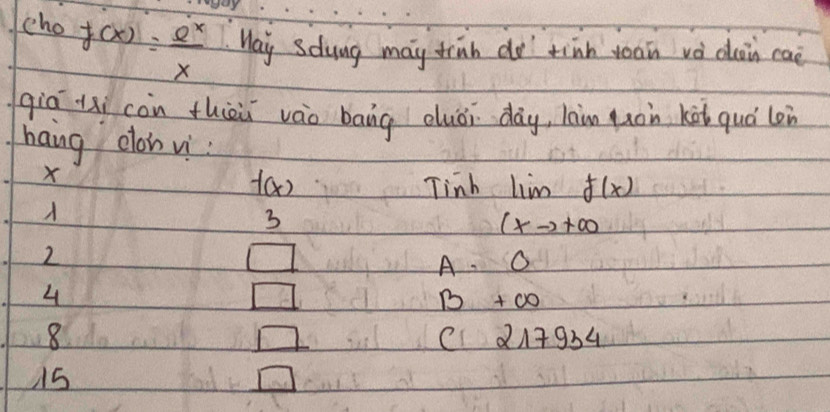 cho f(x) = e^x / x . Hãy sdụng máy tính để tính toán và điền các
giá trị còn thiếu vào bảng dưới đây, làm tròn kết quả đến
hàng đơn vị:
x f(x) Tính lim f(x)
1 3 (x → +∞
2 □ A. 0
4 □ B +∞
8 □ C 217934
15 □